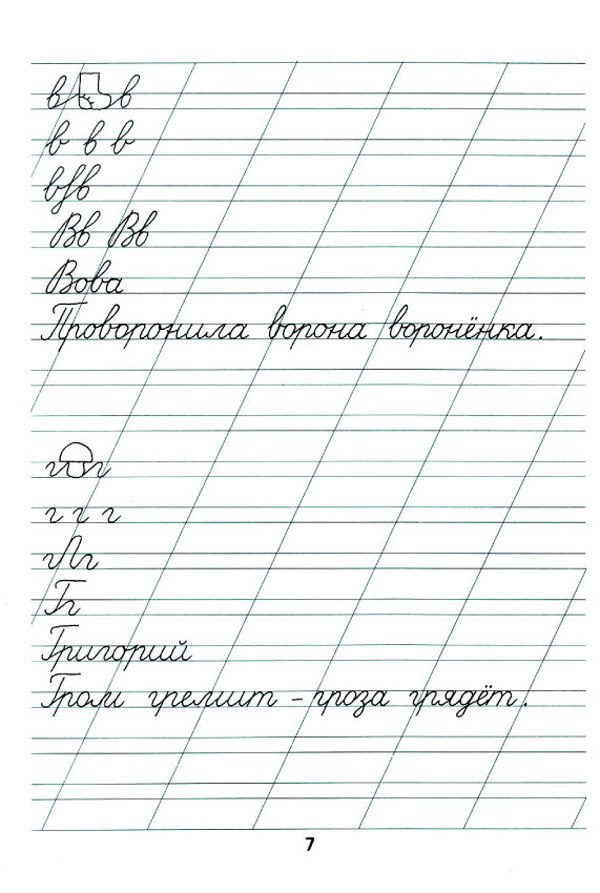 в в
в в в
в в
Вв Вв
Вова
Проворонила ворона воронёнка.
г г
г г г
г г
Гг
Григорий
Гром гремит – гроза грядёт.
7